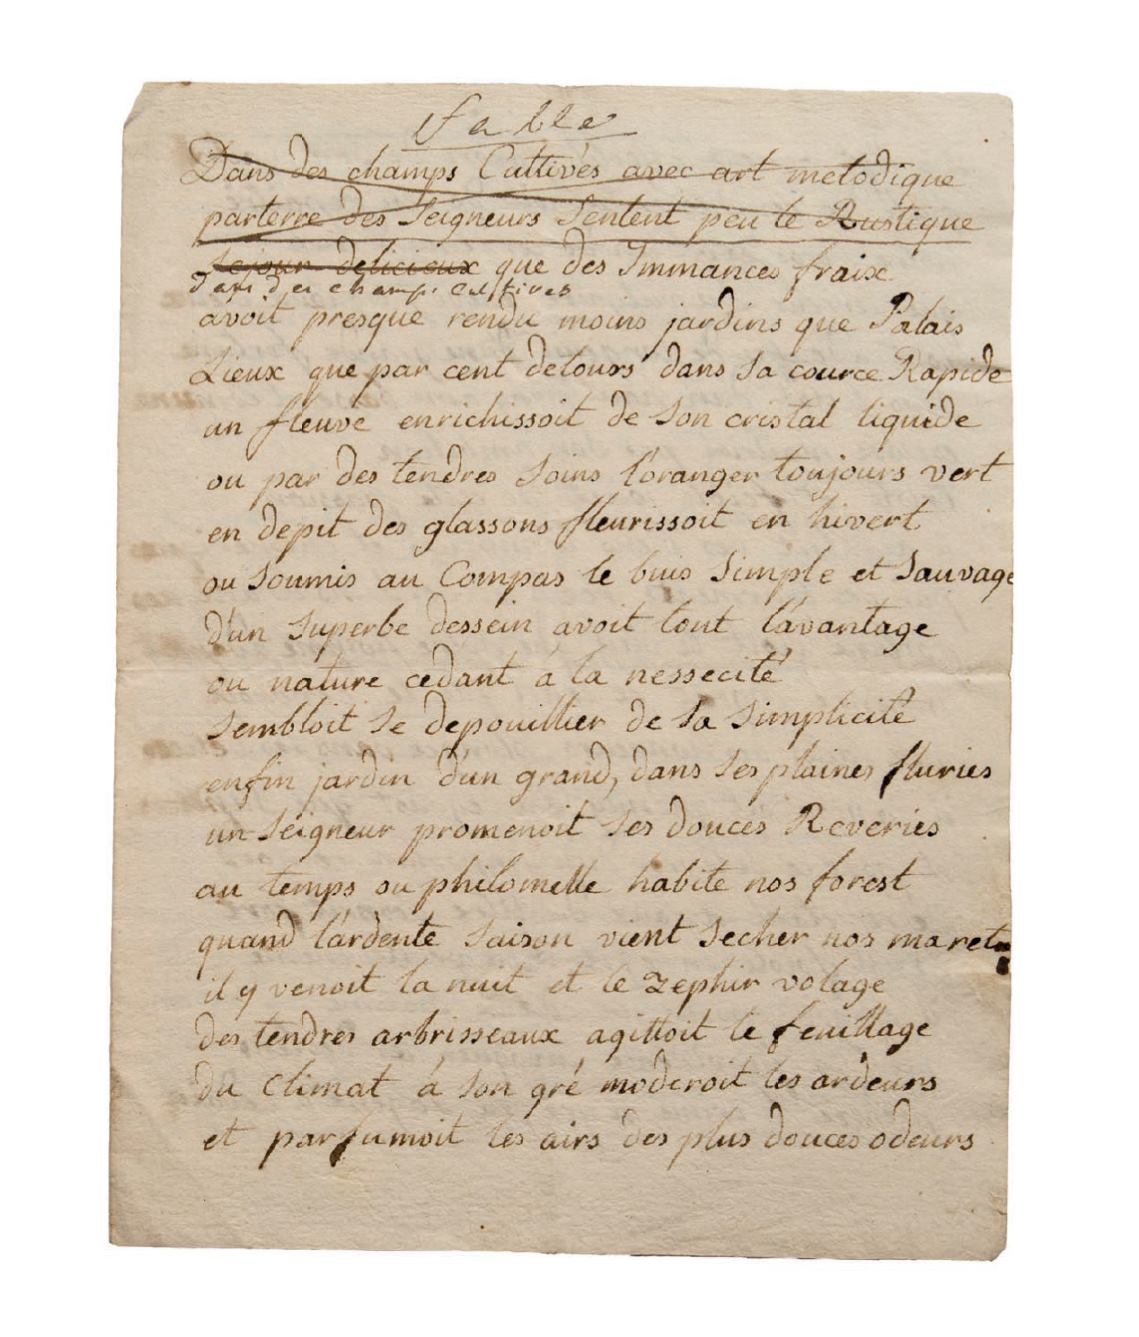 fable
Dans des champs Cultivés avec art metodique
parterre des Seigneurs Sentent peu le Rustique
Sejour delicieux que des Immances fraix
dans des champs cultives
avoit presque rendu moins jardins que Palais
Lieux que par cent detours dans sa cource Rapide
un fleuve enrichissoit de son cristal liquide
ou par des tendres soins l'oranger toujours vert
en depit des glassons fleurissoit en hivert
ou soumis au Compas le buis simple et sauvage
d'un superbe dessein avoit tout l'avantage
ou nature cedant á la nessecité
sembloit se depouillier de sa simplicité
enfin jardin d'un grand, dans ses plaines fluries
un seigneur promenoit ses douces Reveries
au temps ou philomelle habite nos forest
quand l'ardente saison vient secher nos marets
il y venoit la nuit et le zephir volage
des tendres arbrisseaux agittoit le feuillage
du climat á son gré moderoit les ardeurs
et parfumoit les airs des plus douces odeurs